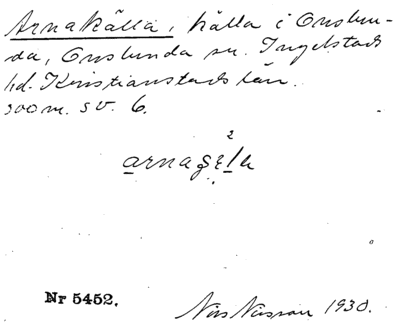 Arnakälla, källa i Onslun-
da, Onslunda sn. Ingelstads
hd. Kristianstads län.
500 m. SV. 6.
Nr 5452.
Nils Nilsson 1930.